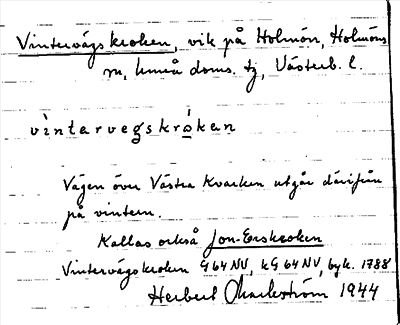 Vintervägskroken, vik på Holmön, Holmöns
sn, Umeå doms. tg, Västerb. l.
vìntarvegskrókan
Vägen över Västra Kvarken utgår därifrån
på vintern.
Kallas också Jon-Erskroken
Vintervägskroken G 64 NV, kG 64 NV, byk. 1788
Herbert 1944